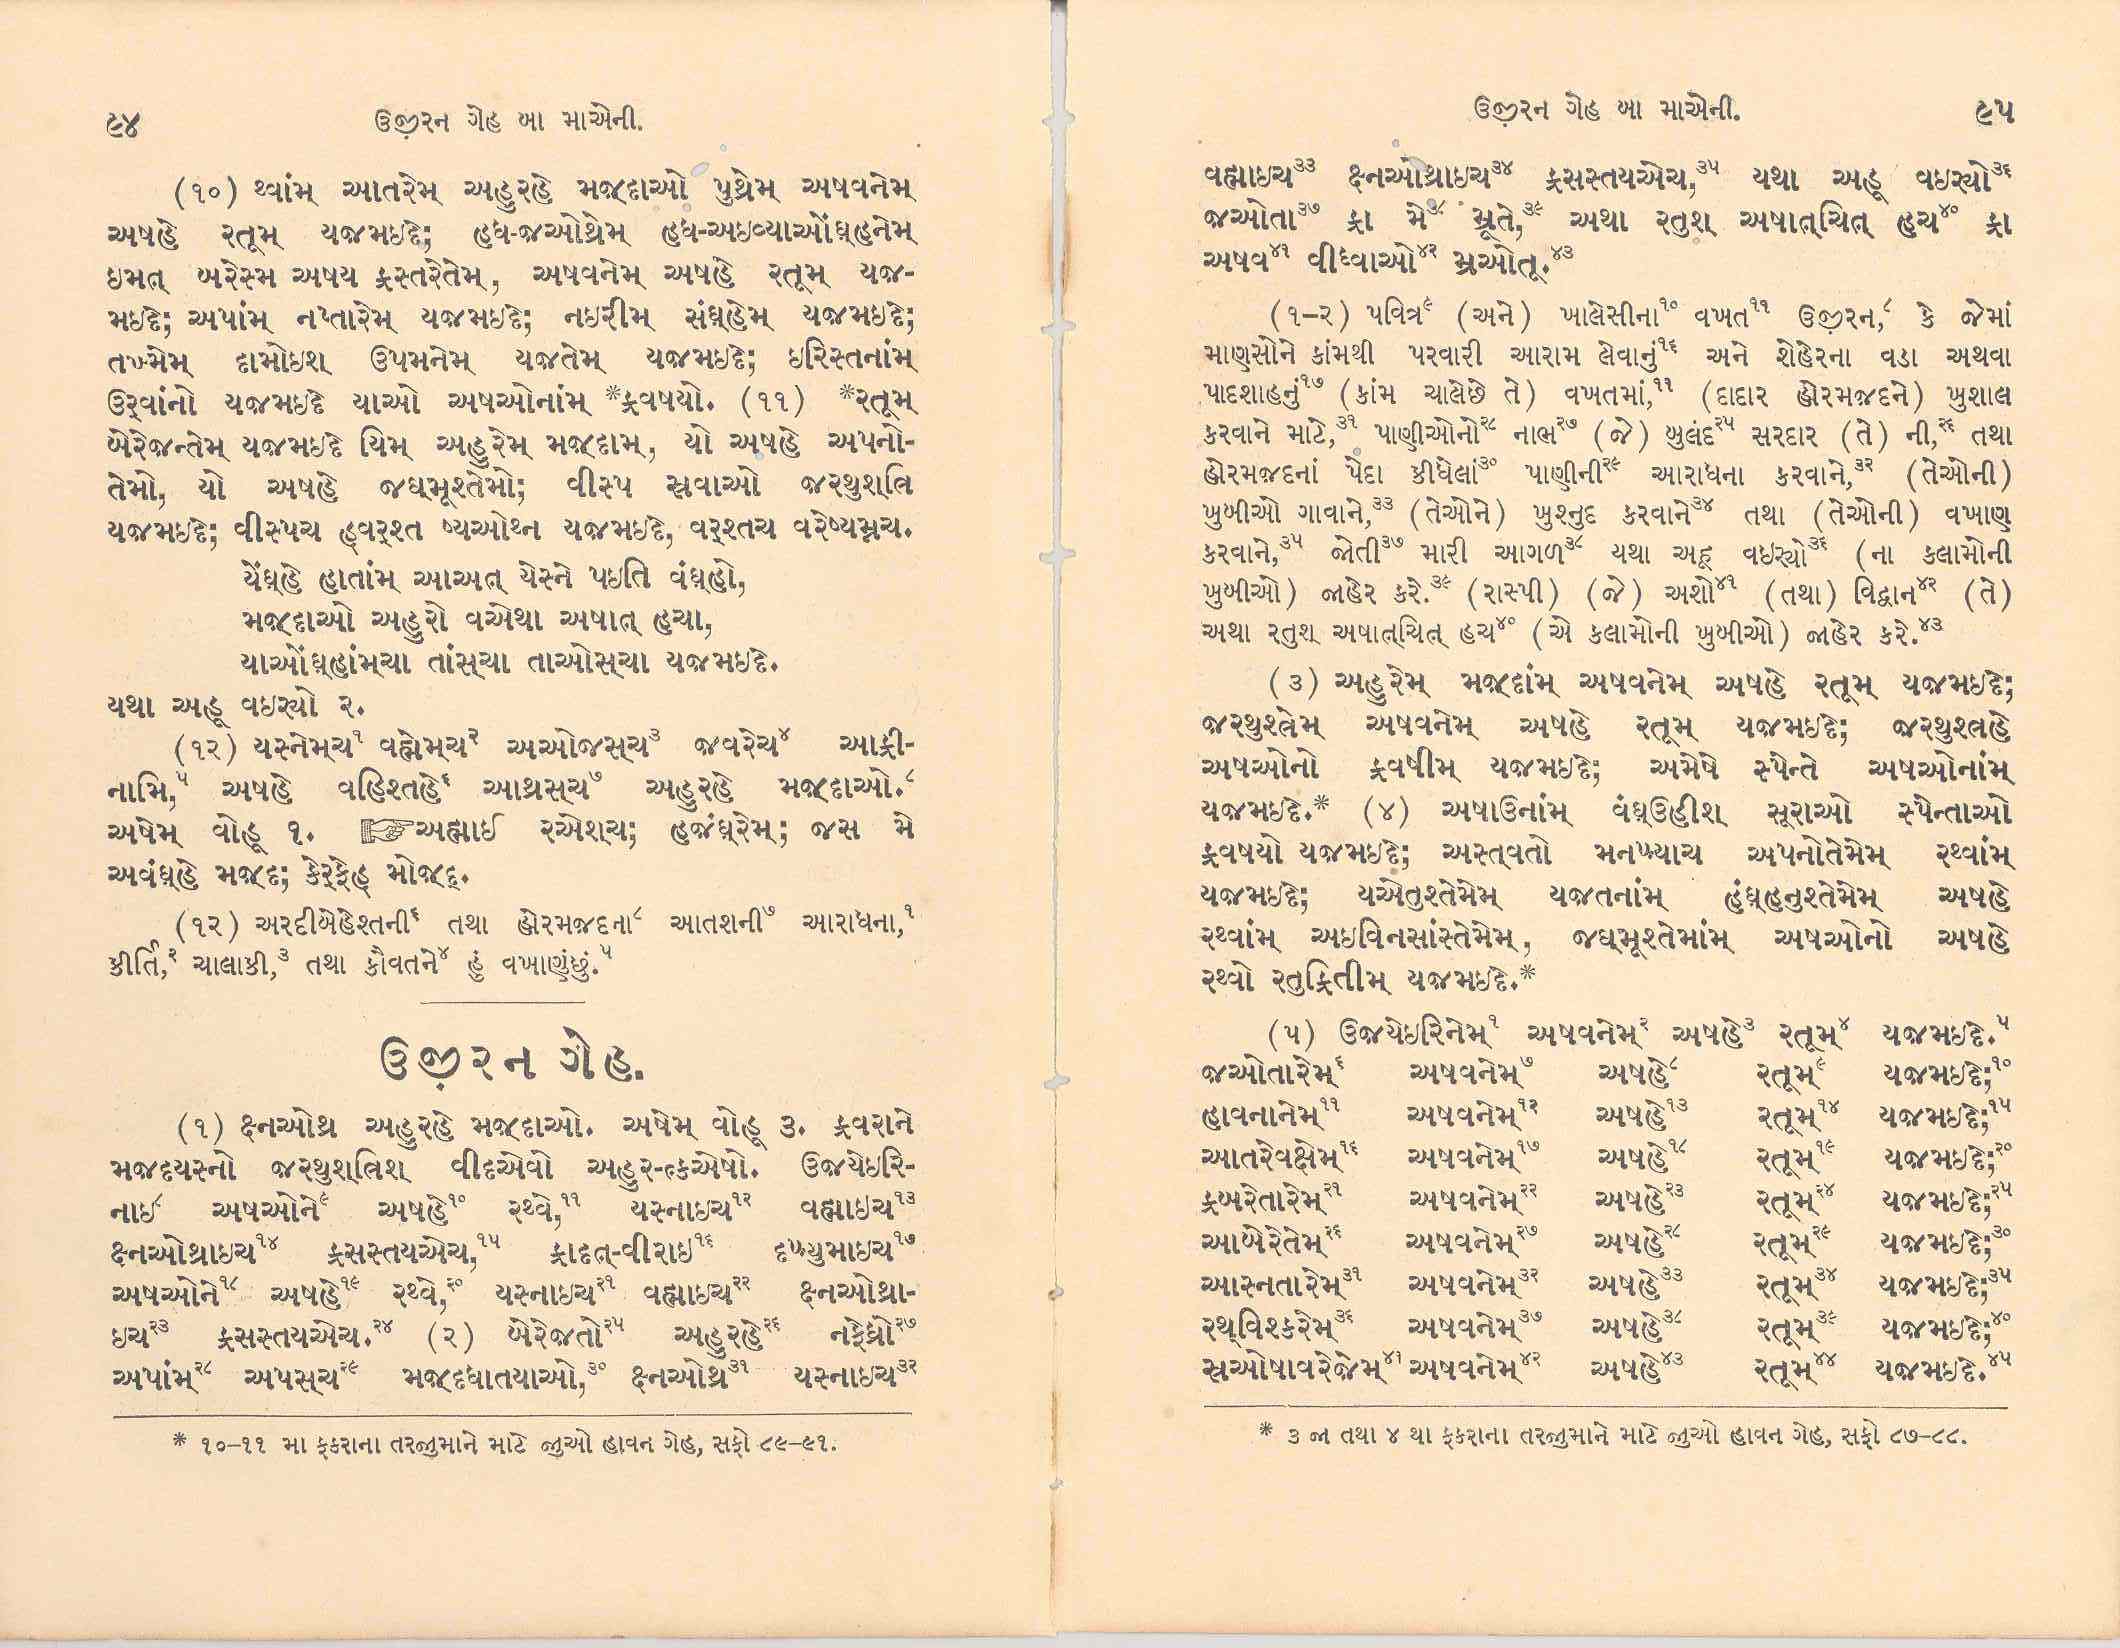 ૯૪ ઉજ઼ીરન ગેહ બા માએની.
(૧૦) થ્વાંમ્ આતરેમ્ અહુરહે મજ઼્દાઓ પુથ્રેમ્ અષવનેમ્
અષહે રતૂમ્ યજ઼મઇદે; હધ-જ઼ઓથ્રેમ્ હધ-અઇવ્યાઓંઘ્હનેમ્
ઇમત્ બરેસ્મ અષય ફ્રસ્તરેતેમ્, અષવનેમ્ અષહે રતૂમ્ યજ઼-
મઇદે; અપાંમ્ નપ્તારેમ્ યજ઼મઇદે; નઇરીમ્ સંઘ્હેમ્ યજ઼મઇદે;
તખ્મેમ્ દામોઇશ્ ઉપમનેમ્ યજ઼તેમ્ યજ઼મઇદે; ઇરિસ્તનાંમ્
ઉર્વાંનો યજ઼મઇદે યાઓ અષઓનાંમ્ *ફ્રવષયો. (૧૧) *રતૂમ્
બેરેજ઼ન્તેમ્ યજ઼મઇદે યિમ્ અહુરેમ્ મજ઼્દામ્, યો અષહે અપનો-
તેમો, યો અષહે જઘ્મૂશ્તેમો; વીસ્પ સ્રવાઓ જ઼રથુશ્ત્રિ
યજ઼મઇદે; વીસ્પચ હ્વર્શ્ત ષ્યઓથ્ન યજ઼મઇદે, વર્શ્તચ વરેષ્યમ્નચ.
યેંઘ્હે હાતાંમ્ આઅત્ યેસ્ને પઇતિ વંઘ્હો,
મજ઼્દાઓ અહુરો વએથા અષાત્ હચા,
યાઓંઘ્હાંમ્ચા તાંસ્ચા તાઓસ્ચા યજ઼મઇદે.
યથા અહૂ વઇર્યો ૨.
(૧૨) યસ્નેમ્ચ૧ વહ્મેમ્ચ૨ અઓજસ્ચ૩ જ઼વરેચ૪ આફ્રી-
નામિ,૫ અષહે વહિશ્તહે૬ આથ્રસ્ચ૭ અહુરહે મજ઼્દાઓ.૮
અષેમ્ વોહૂ ૧. ☞અહ્માઈ રએશ્ચ; હજ઼ંઘ્રેમ્; જસ મે
અવંઘ્હે મજ઼્દ; કેર્ફેહ્ મોજ઼્દ્.
(૧૨) અરદીબેહેશ્તની૬ તથા હોરમજ઼દના૮ આતશની૭ આરાધના,૧
કીર્તિ,૨ ચાલાકી,૩ તથા કૌવતને૪ હું વખાણુંછું.૫
ઉજ઼ીરન ગેહ.
(૧) ક્ષ્નઓથ્ર અહુરહે મજ઼્દાઓ. અષેમ્ વોહૂ ૩. ફ્રવરાને
મજ઼દયસ્નો જ઼રથુશ્ત્રિશ્ વીદએવો અહુર-ત્કએષો. ઉજ઼યેઇરિ-
નાઇ૮ અષઓને૯ અષહે૧૦ રથ્વે,૧૧ યસ્નાઇચ૧૨ વહ્માઇચ૧૩
ક્ષ્નઓથ્રાઇચ૧૪ ફ્રસસ્તયએચ,૧૫ ફ્રાદત્-વીરાઇ૧૬ દખ્યુમાઇચ૧૭
અષઓને૧૮ અષહે૧૯ રથ્વે,૨૦ યસ્નાઇચ૨૧ વહ્માઇચ૨૨ ક્ષ્નઓથ્રા-
ઇચ૨૩ ફ્રસસ્તયએચ.૨૪ (૨) બેરેજ઼તો૨૫ અહુરહે૨૬ નફેધ્રો૨૭
અપાંમ્૨૮ અપસ્ચ૨૯ મજ઼્દધાતયાઓ,૩૦ ક્ષ્નઓથ્ર૩૧ યસ્નાઇચ૩૨
* ૧૦–૧૧ મા ફકરાના તરજુમાને માટે જુઓ હાવન ગેહ, સફો ૮૯–૯૧.
ઉજ઼ીરન ગેહ બા માએની. ૯૫
વહ્માઇચ૩૩ ક્ષ્નઓથ્રાઇચ૩૪ ફ્રસસ્તયએચ,૩૫ યથા અહૂ વઇર્યો૩૬
જ઼ઓતા૩૭ ફ્રા મે૩૮ મ્રૂતે,૩૯ અથા રતુશ્ અષાત્ચિત્ હચ૪૦ ફ્રા
અષવ૪૧ વીધ્વાઓ૪૨ મ્રઓતૂ.૪૩
(૧–૨) પવિત્ર૯ (અને) ખાલેસીના૧૦ વખત૧૧ ઉજ઼ીરન,૮ કે જેમાં
માણસોને કાંમથી પરવારી આરામ લેવાનું૧૬ અને શેહેરના વડા અથવા
પાદશાહનું૧૭ (કાંમ ચાલેછે તે) વખતમાં,૧૧ (દાદાર હોરમજ઼દને) ખુશાલ
કરવાને માટે,૩૧ પાણીઓનો૨૮ નાભ૨૭ (જે) બુલંદ૨૫ સરદાર (તે) ની,૨૬ તથા
હોરમજ઼દનાં પેદા કીધેલાં૩૦ પાણીની૨૯ આરાધના કરવાને,૩૨ (તેઓની)
ખુબીઓ ગાવાને,૩૩ (તેઓને) ખુશ્નુદ કરવાને૩૪ તથા (તેઓની) વખાણ
કરવાને,૩૫ જોતી૩૭ મારી આગળ૩૮ યથા અહૂ વઇર્યો૩૬ (ના કલામોની
ખુબીઓ) જાહેર કરે.૩૯ (રાસ્પી) (જે) અશો૪૧ (તથા) વિદ્વાન૪૨ (તે)
અથા રતુશ્ અષાત્ચિત્ હચ૪૦ (એ કલામોની ખુબીઓ) જાહેર કરે.૪૩
(૩) અહુરેમ્ મજ઼્દાંમ્ અષવનેમ્ અષહે રતૂમ્ યજ઼મઇદે;
જ઼રથુશ્ત્રેમ્ અષવનેમ્ અષહે રતૂમ્ યજ઼મઇદે; જ઼રથુશ્ત્રહે
અષઓનો ફ્રવષીમ્ યજ઼મઇદે; અમેષે સ્પેન્તે અષઓનાંમ્
યજ઼મઇદે.* (૪) અષાઉનાંમ્ વંઘ્ઉહીશ્ સૂરાઓ સ્પેન્તાઓ
ફ્રવષયો યજ઼મઇદે; અસ્ત્વતો મનખ્યાચ અપનોતેમેમ્ રથ્વાંમ્
યજ઼મઇદે; યએતુશ્તેમેમ્ યજ઼તનાંમ્ હંઘ્હનુશ્તેમેમ્ અષહે
રથ્વાંમ્ અઇવિનસાંસ્તેમેમ્, જઘ્મૂશ્તેમાંમ્ અષઓનો અષહે
રથ્વો રતુફ્રિતીમ્ યજ઼મઇદે.*
(૫) ઉજ઼યેઇરિનેમ્૧ અષવનેમ્૨ અષહે૩ રતૂમ્૪ યજ઼મઇદે.૫
જ઼ઓતારેમ્૬ અષવનેમ્૭ અષહે૮ રતૂમ્૯ યજ઼મઇદે;૧૦
હાવનાનેમ્૧૧ અષવનેમ્૧૨ અષહે૧૩ રતૂમ્૧૪ યજ઼મઇદે;૧૫
આતરેવક્ષેમ્૧૬ અષવનેમ્૧૭ અષહે૧૮ રતૂમ્૧૯ યજ઼મઇદે;૨૦
ફ્રબરેતારેમ્૨૧ અષવનેમ્૨૨ અષહે૨૩ રતૂમ્૨૪ યજ઼મઇદે;૨૫
આબેરેતેમ્૨૬ અષવનેમ્૨૭ અષહે૨૮ રતૂમ્૨૯ યજ઼મઇદે;૩૦
આસ્નતારેમ્૩૧ અષવનેમ્૩૨ અષહે૩૩ રતૂમ્૩૪ યજ઼મઇદે;૩૫
રથ્વિશ્કરેમ્૩૬ અષવનેમ્૩૭ અષહે૩૮ રતૂમ્૩૯ યજ઼મઇદે;૪૦
સ્રઓષાવરેજ઼ેમ્૪૧ અષવનેમ્૪૨ અષહે૪૩ રતૂમ્૪૪ યજ઼મઇદે.૪૫
* ૩ જા તથા ૪ થા ફકરાના તરજુમાને માટે જુઓ હાવન ગેહ, સફો ૮૭–૮૮.